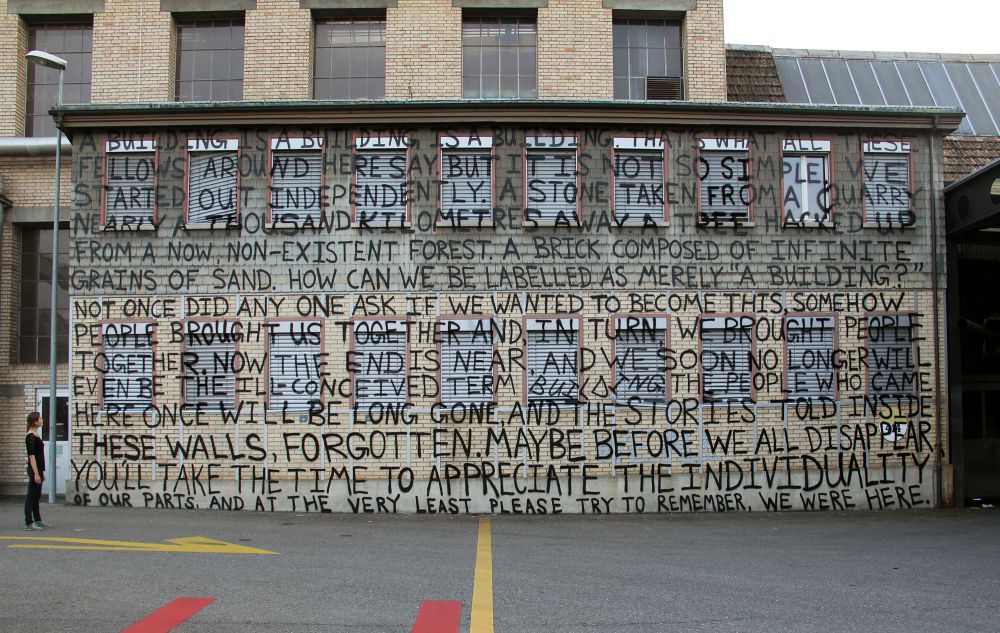 A BUILDING IS A BUILDING IS A BUILDING THAT'S WHAT ALL THESE
FELLOWS AROUND HERE SAY. BUT IT IS NOT SO SIMPLE. WE
STARTED OUT INDEPENDENTLY. A STONE TAKEN FROM A QUARRY
NEARLY A THOUSAND KILOMETRES AWAY. A TREE HACKED UP
FROM A NOW, NON-EXISTENT FOREST. A BRICK COMPOSED OF INFINITE
GRAINS OF SAND. HOW CAN WE BE LABELLED AS MERELY "A BUILDING?"
NOT ONCE DID ANY ONE ASK IF WE WANTED TO BECOME THIS, SOMEHOW
PEOPLE BROUGHT US TOGETHER AND, IN TURN WE BROUGHT PEOPLE
TOGETHER. NOW THE END IS NEAR, AND WE SOON NO LONGER WILL
EVEN BE THE ILL-CONCEIVED TERM BUILDING. THE PEOPLE WHO CAME
HERE ONCE WILL BE LONG GONE AND THE STORIES TOLD INSIDE
THESE WALLS, FORGOTTEN. MAYBE BEFORE WE ALL DISAPPEAR
YOU'LL TAKE THE TIME TO APPRECIATE THE INDIVIDUALITY
OF OUR PARTS, AND AT THE VERY LEAST PLEASE TRY TO REMEMBER, WE WERE HERE.